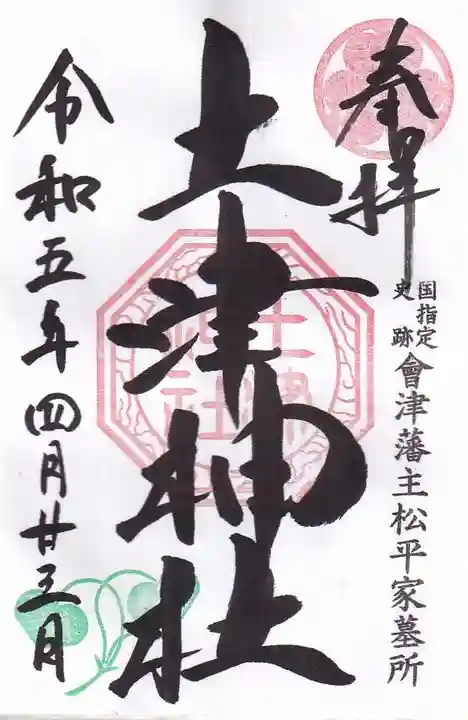 奉拝
国指定
史跡
會津藩主松平家墓所
土津神社
土津
神社
令和五年四月廿三日